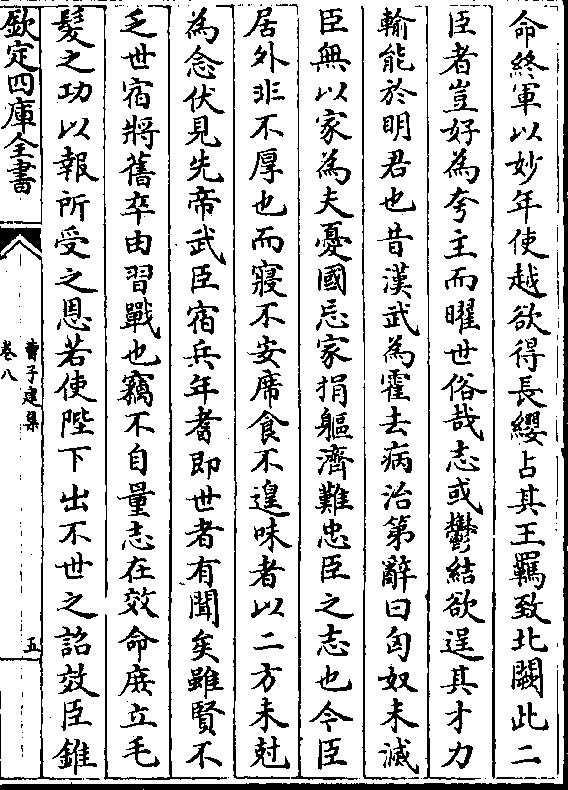 命終軍以妙年使越欲得長纓占其王羈致北闕此二
臣者豈好為夸主而曜世俗哉志或鬱結欲逞其才力
輸能於明君也昔漢武為霍去病治第辭曰匈奴未滅
臣無以家為夫憂國忘家捐軀濟難忠臣之志也今臣
居外非不厚也而寢不安席食不遑味者以二方未尅
為念伏見先帝武臣宿兵年耆即世者有聞矣雖賢不
乏世宿將舊卒由習戰也竊不自量志在效命庶立毛
髮之功以報所受之恩若使陛下出不世之詔效臣錐
欽定四庫全書
曹子建集
卷八
五